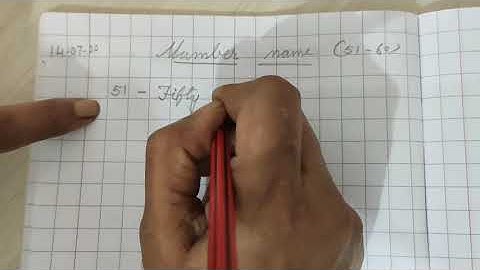 14-07-20 Number name (51-60)
51 - Fifty